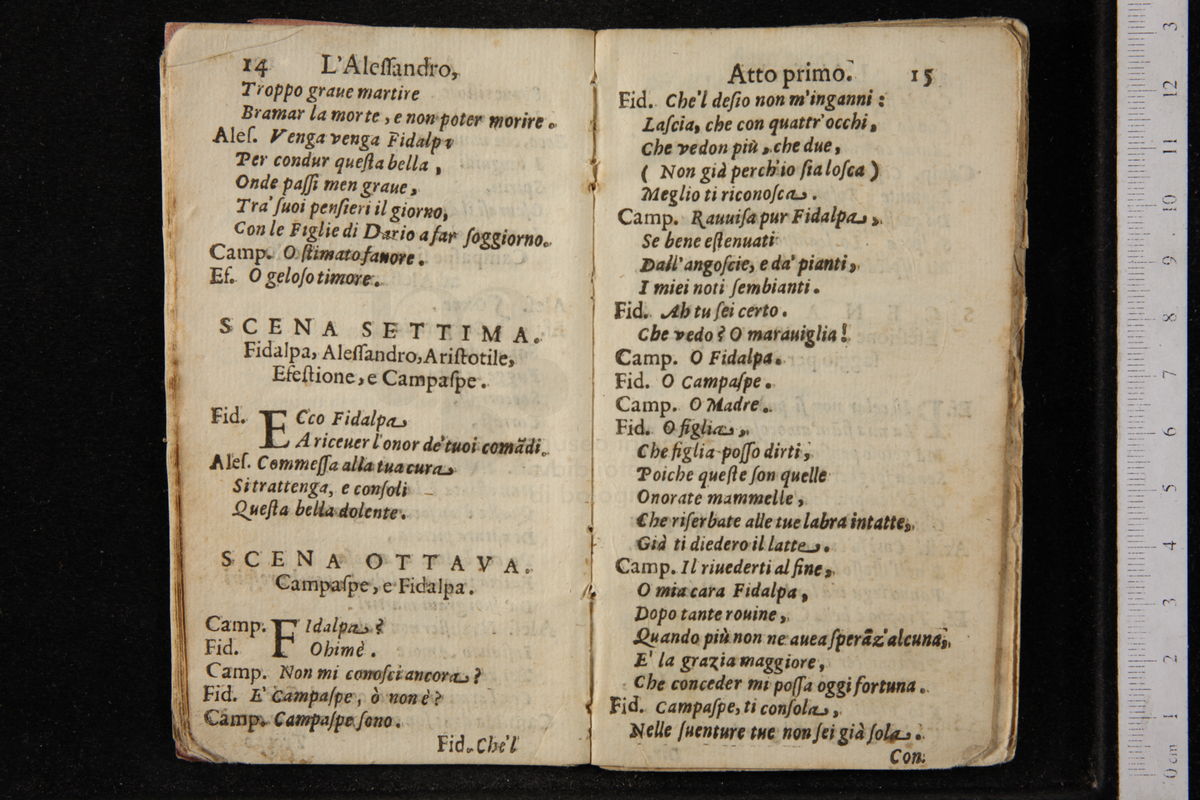 14 L'Aleſſandro,
Troppo graue martire
Bramar la morte, e non poter morire.
Aleſ. Venga venga Fidalpa
Per condur queſta bella,
Onde paſſi men graue,
Tra' ſuoi penſieri il giorno,
Con le Figlie di Dario a far ſoggiorno.
Camp. O ſtimato fauore.
Ef. O geloſo timore.
SCENA SETTIMA.
Fidalpa, Aleſſandro, Ariſtotile,
Efeſtione, e Campaſpe.
Fid. ECco Fidalpa
A riceuer l'onor de' tuoi comãdi.
Aleſ. Commeſſa alla tua cura
Si trattenga, e conſoli
Queſta bella dolente.
SCENA OTTAVA.
Campaſpe, e Fidalpa.
Camp. FIdalpa?
Fid. Ohimè.
Camp. Non mi conoſci ancora?
Fid. E' Campaſpe, ò non è?
Camp. Campaſpe ſono.
Fid. Che'l
Atto primo. 15
Fid. Che'l deſio non m'inganni:
Laſcia, che con quattr'occhi,
Che vedon più, che due,
(Non già perch'io ſia loſca)
Meglio ti riconoſca.
Camp. Rauuiſa pur Fidalpa,
Se bene eſtenuati
Dall'angoſcie, e da' pianti,
I miei noti ſembianti.
Fid. Ah tu ſei certo.
Che vedo? O marauiglia!
Camp. O Fidalpa.
Fid. O Campaſpe.
Camp. O Madre.
Fid. O figlia,
Che figlia poſſo dirti,
Poiche queſte ſon quelle
Onorate mammelle,
Che riſerbate alle tue labra intatte,
Già ti diedero il latte.
Camp. Il riuederti al fine,
O mia cara Fidalpa,
Dopo tante rouine,
Quando più non ne auea ſperãz' alcuna,
E' la grazia maggiore,
Che conceder mi poſſa oggi fortuna.
Fid. Campaſpe, ti conſola,
Nelle ſuenture tue non ſei già ſola.
Con
0 cm 1 2 3 4 5 6 7 8 9 10 11 12 3